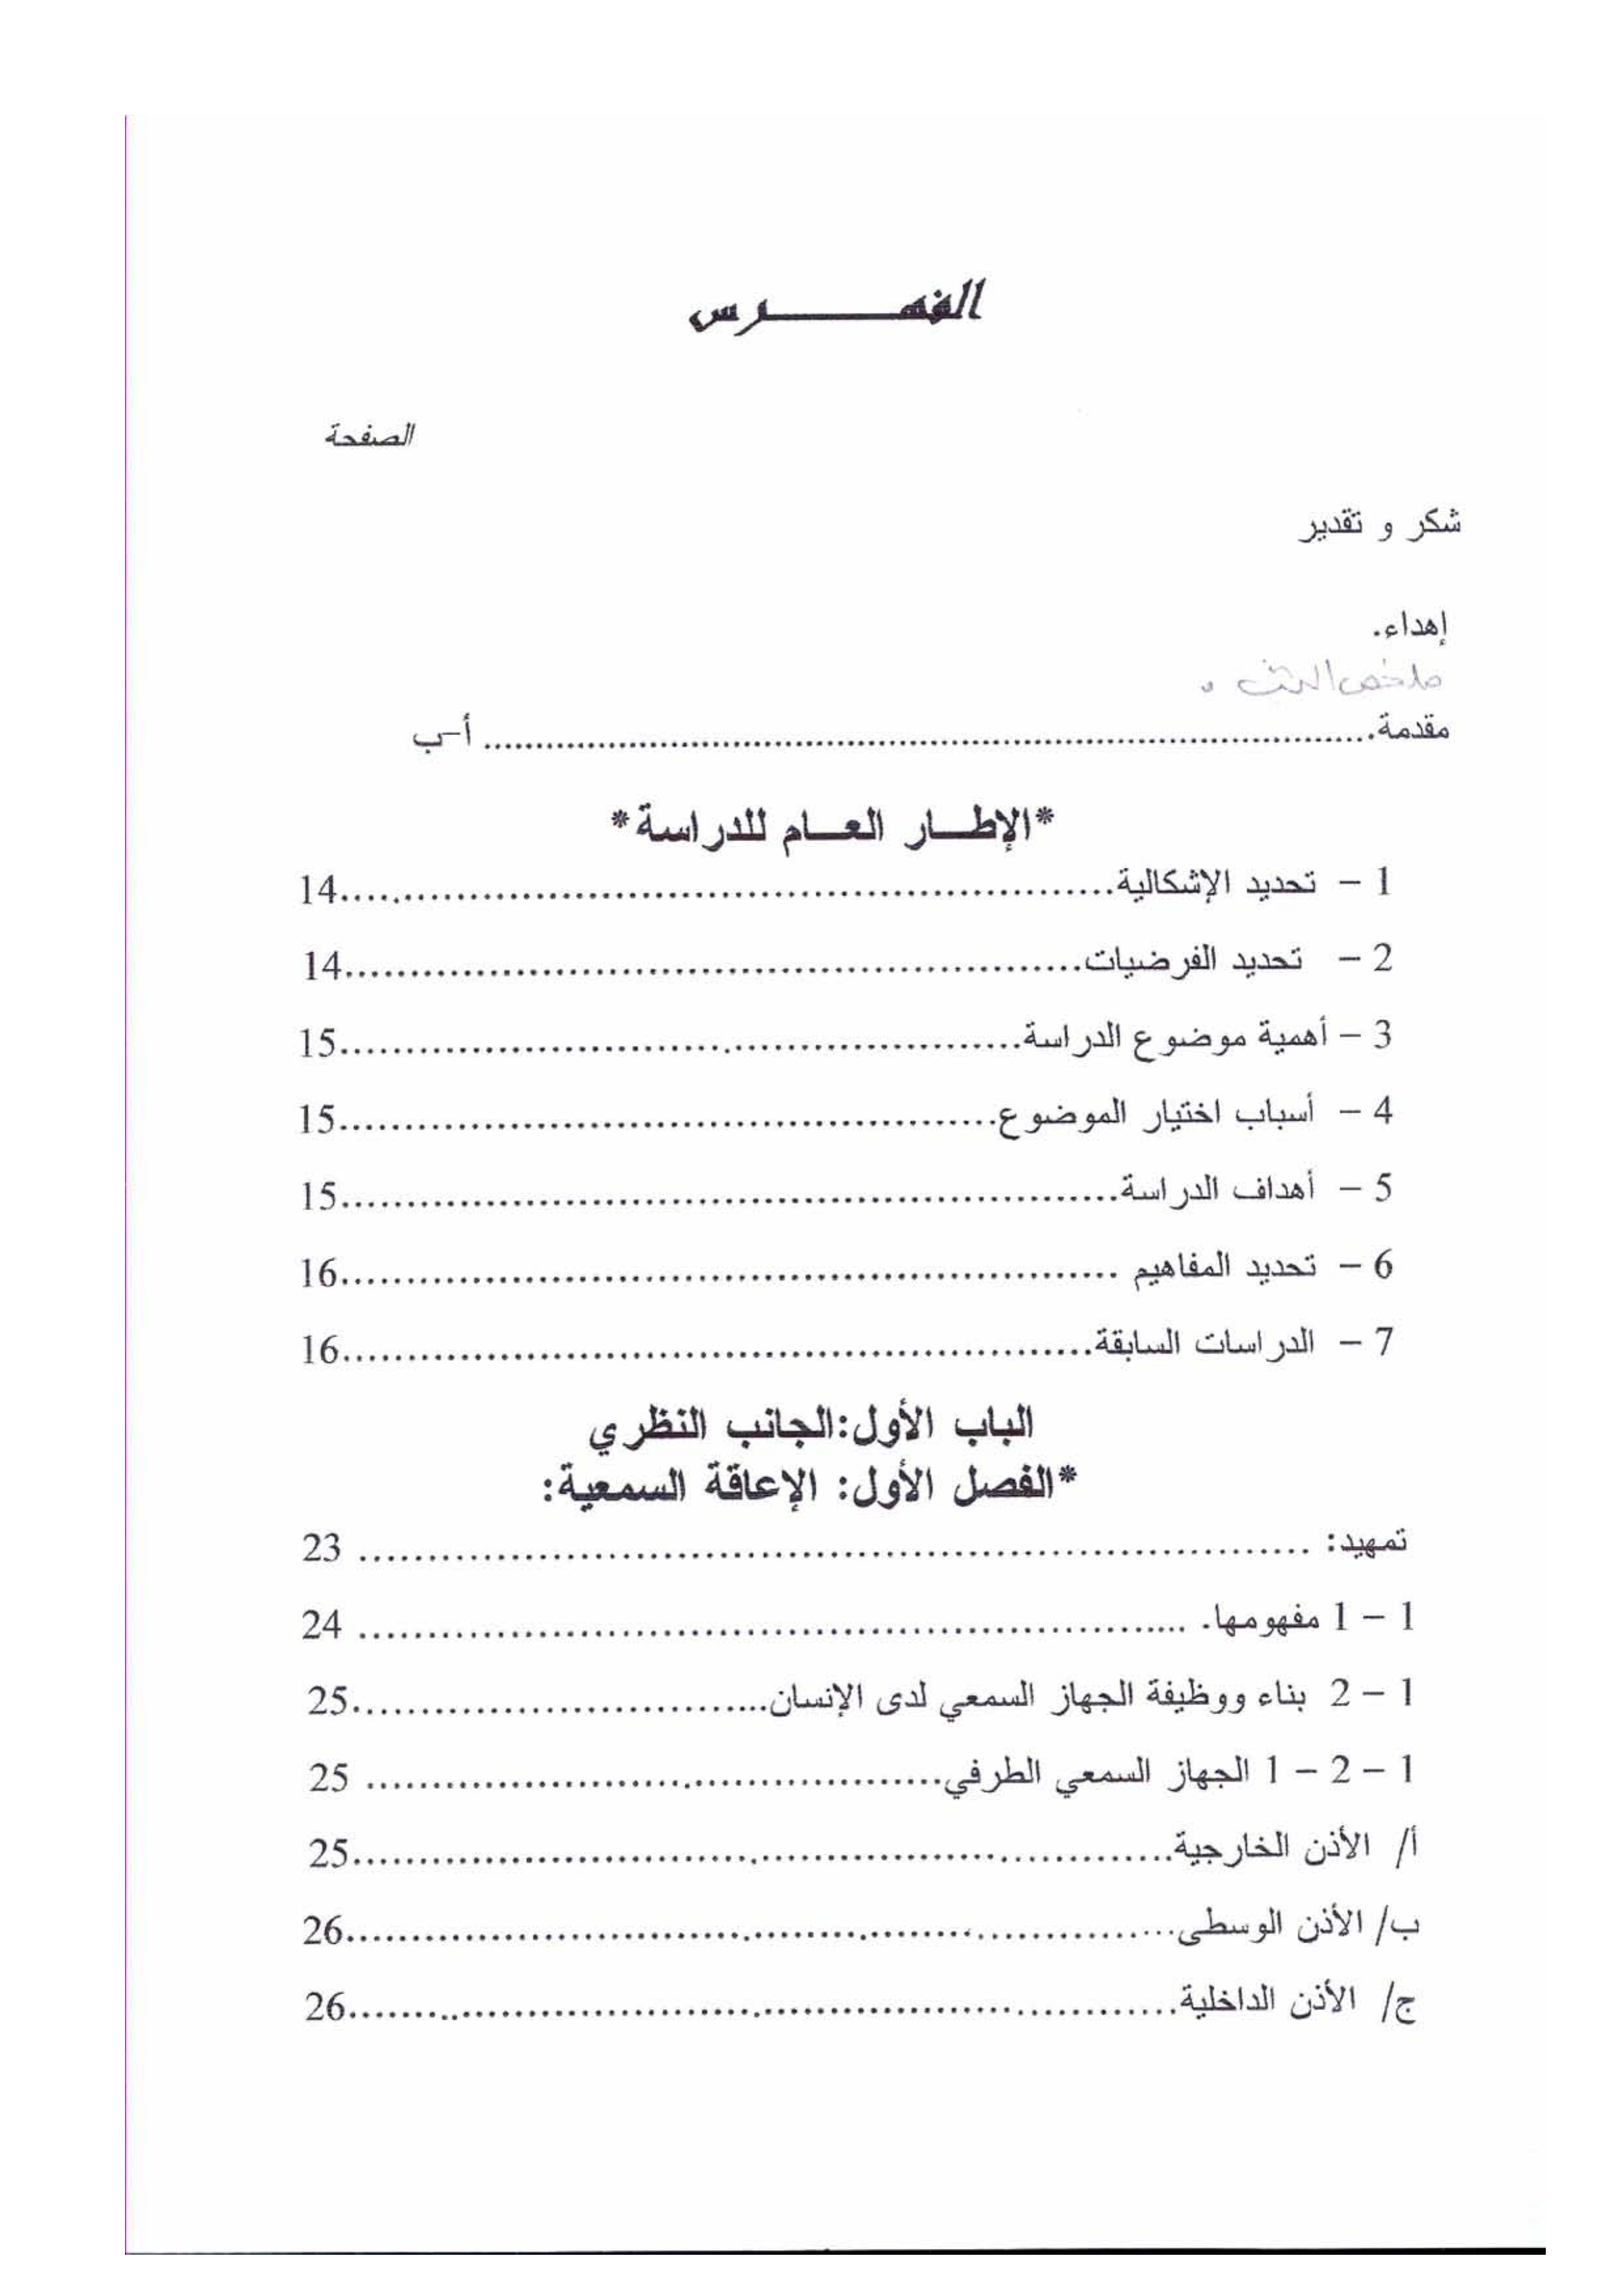 الفهـــــرس
الصفحة
شكر و تقدير
إهداء.
ملخص البحث .
مقدمة.................................................................................... أ-ب
*الإطـــار العـــام للدراسة*
1 – تحديد الإشكالية............................................................14
2 – تحديد الفرضيات..........................................................14
3 – أهمية موضوع الدراسة.....................................................15
4 – أسباب اختيار الموضوع...................................................15
5 – أهداف الدراسة............................................................15
6 – تحديد المفاهيم ............................................................16
7 – الدراسات السابقة..........................................................16
الباب الأول:الجانب النظري
*الفصل الأول: الإعاقة السمعية:
تمهيد: ...................................................................... 23
1 – 1 مفهومها. ............................................................... 24
1 – 2 بناء ووظيفة الجهاز السمعي لدى الإنسان................................25
1 – 2 – 1 الجهاز السمعي الطرفي............................................ 25
أ/ الأذن الخارجية..............................................................25
ب/ الأذن الوسطى..............................................................26
ج/ الأذن الداخلية..............................................................26